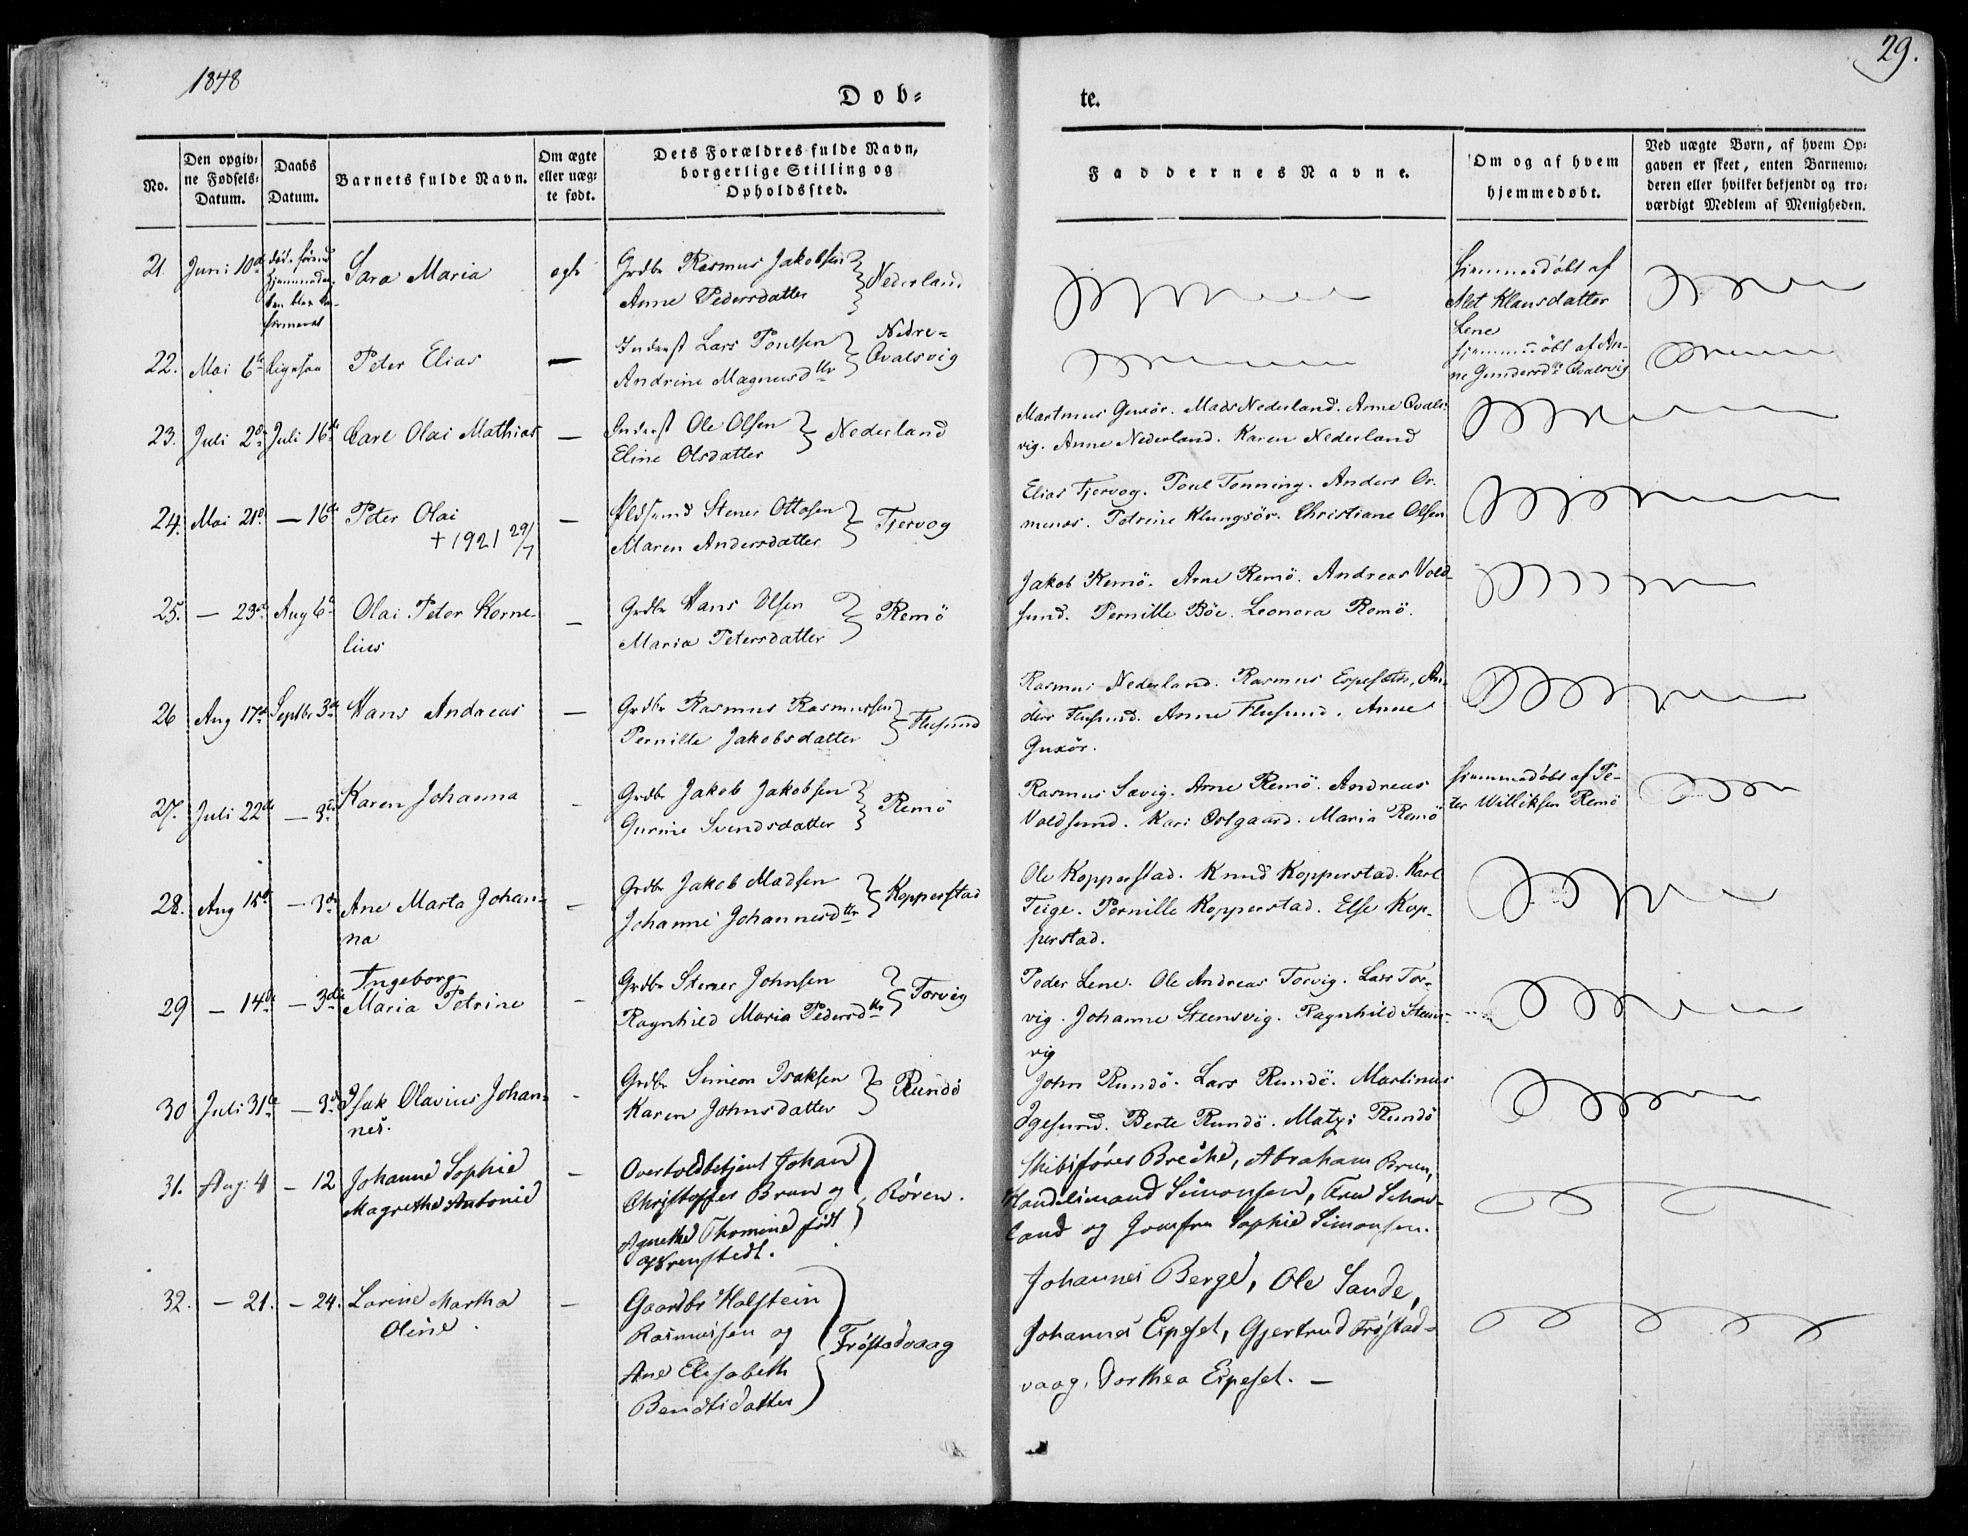 1848
29.
Døb=
te.
No.
Den opgiv=
ne Fødsels=
Datum.
Daabs
Datum.
Barnets fulde Navn.
Om ægte
eller uæg=
te født.
Dets Forældres fulde Navn,
borgerlige Stilling og
Opholdssted.
Faddernes Navne.
Om og af hvem
hjemmedøbt.
Ved uægte Børn, af hvem Op=
gaven er skeet, enten Barnemo=
deren eller hvilket bekjendt og tro=
værdigt Medlem af Menigheden.
21. Juni 10de død førend
hjemmedaa-
ben blev con-
firmeret
Sara Maria ægte Grdbr Rasmus Jakobsen
Anne Pedersdatter
Nederland
hjemmedøbt af
Alet Klausdatter
Lene
22. Mai 6te ligesaa Peter Elias — Inderst Lars Poulsen
Andrine Magnusdtr
Nedre=
Qvalsvig
hjemmedøbt af An-
ne Gundersdr Qvalsvig
23. Juli 2den Juli 16de Carl Olai Mathias — Inderst Ole Olsen
Eline Olsdatter
Nederland
Martinus Guxör. Mads Nederland. Anne Qvals-
vig. Anne Nederland. Karen Nederland
24. Mai 21de — 16de Peter Olai
+ 1921 29/7
— Stener Ottosen
Maren Andersdatter
Tjervog
Elias Tjervog. Poul Tonning. Anders Or-
menes. Petrine Klungsör. Christiane Olsen
25. — 23de Aug 6te Olai Peter Korne-
lius
— Grdbr Hans Olsen
Maria Petersdatter
Remö
Jakob Remö. Arne Remö. Andreas Vold-
sund. Pernille Böe. Leonora Remö.
26 Aug 17de Septbr 3de Hans Andreas — Grdbr Rasmus Rasmussen
Pernille Jakobsdatter
Flusund
Rasmus Nederland. Rasmus Espesæth, An-
ders Flusund. Anne Flusund. Anne
Guxör.
27. Juli 22de — 3de Karen Johanna — Grdbr Jakob Jakobsen
Gurine Svendsdatter
Remö
Rasmus Sævig. Arne Remö. Andreas
Voldsund. Kari Østgaard. Maria Remö
hjemmedøbt af Pe-
ter Williksen Remö
28. Aug 15de — 3de Ane Marta Johan-
na
— Grdbr Jakob Madsen
Johanne Johannesdtr
Kopperstad
Ole Kopperstad. Knud Kopperstad. Karl
Teige. Pernille Kopperstad. Else Kop-
perstad.
29 — 14de — 3die Ingeborg
Maria Petrine
- Grdbr Stener Johnsen
Ragnhild Maria Pedersdtr
Torvig
Peder Lene. Ole Andreas Torvig. Lars Tor-
vig. Johanne Steensvig. Ragnhild Steens-
vig
30 Juli 31te — 3de Isak Olavius Johan-
nes.
- Grdbr Simeon Isaksen
Karen Johnsdatter
Rundö
John Rundö. Lars Rundö. Martinus
Igesund. Berte Rundö. Matzi Rundö
31. Aug: 4 — 12 Johanne Sophie
Magrethe Antonie
— Overtoldbetjent Johan
Christoffer Brun og
Agnethe Thomine født
Røren.
Skibsfører Breche, Abraham Brun,
Handelsmand Simonsen, Fru
og Jomfru Sophie Simonsen.
32. — 21. — 24. Lorine Martha
Oline.
— Gaardbr Holstein
Rasmussen og
Ane Elisabeth
Bendtsdatter
Frøstadvaag
Johannes Berge, Ole Sande,
Johannes Espeset, Gjertrud Frøstad-
vaag, Dorthea Espeset. —